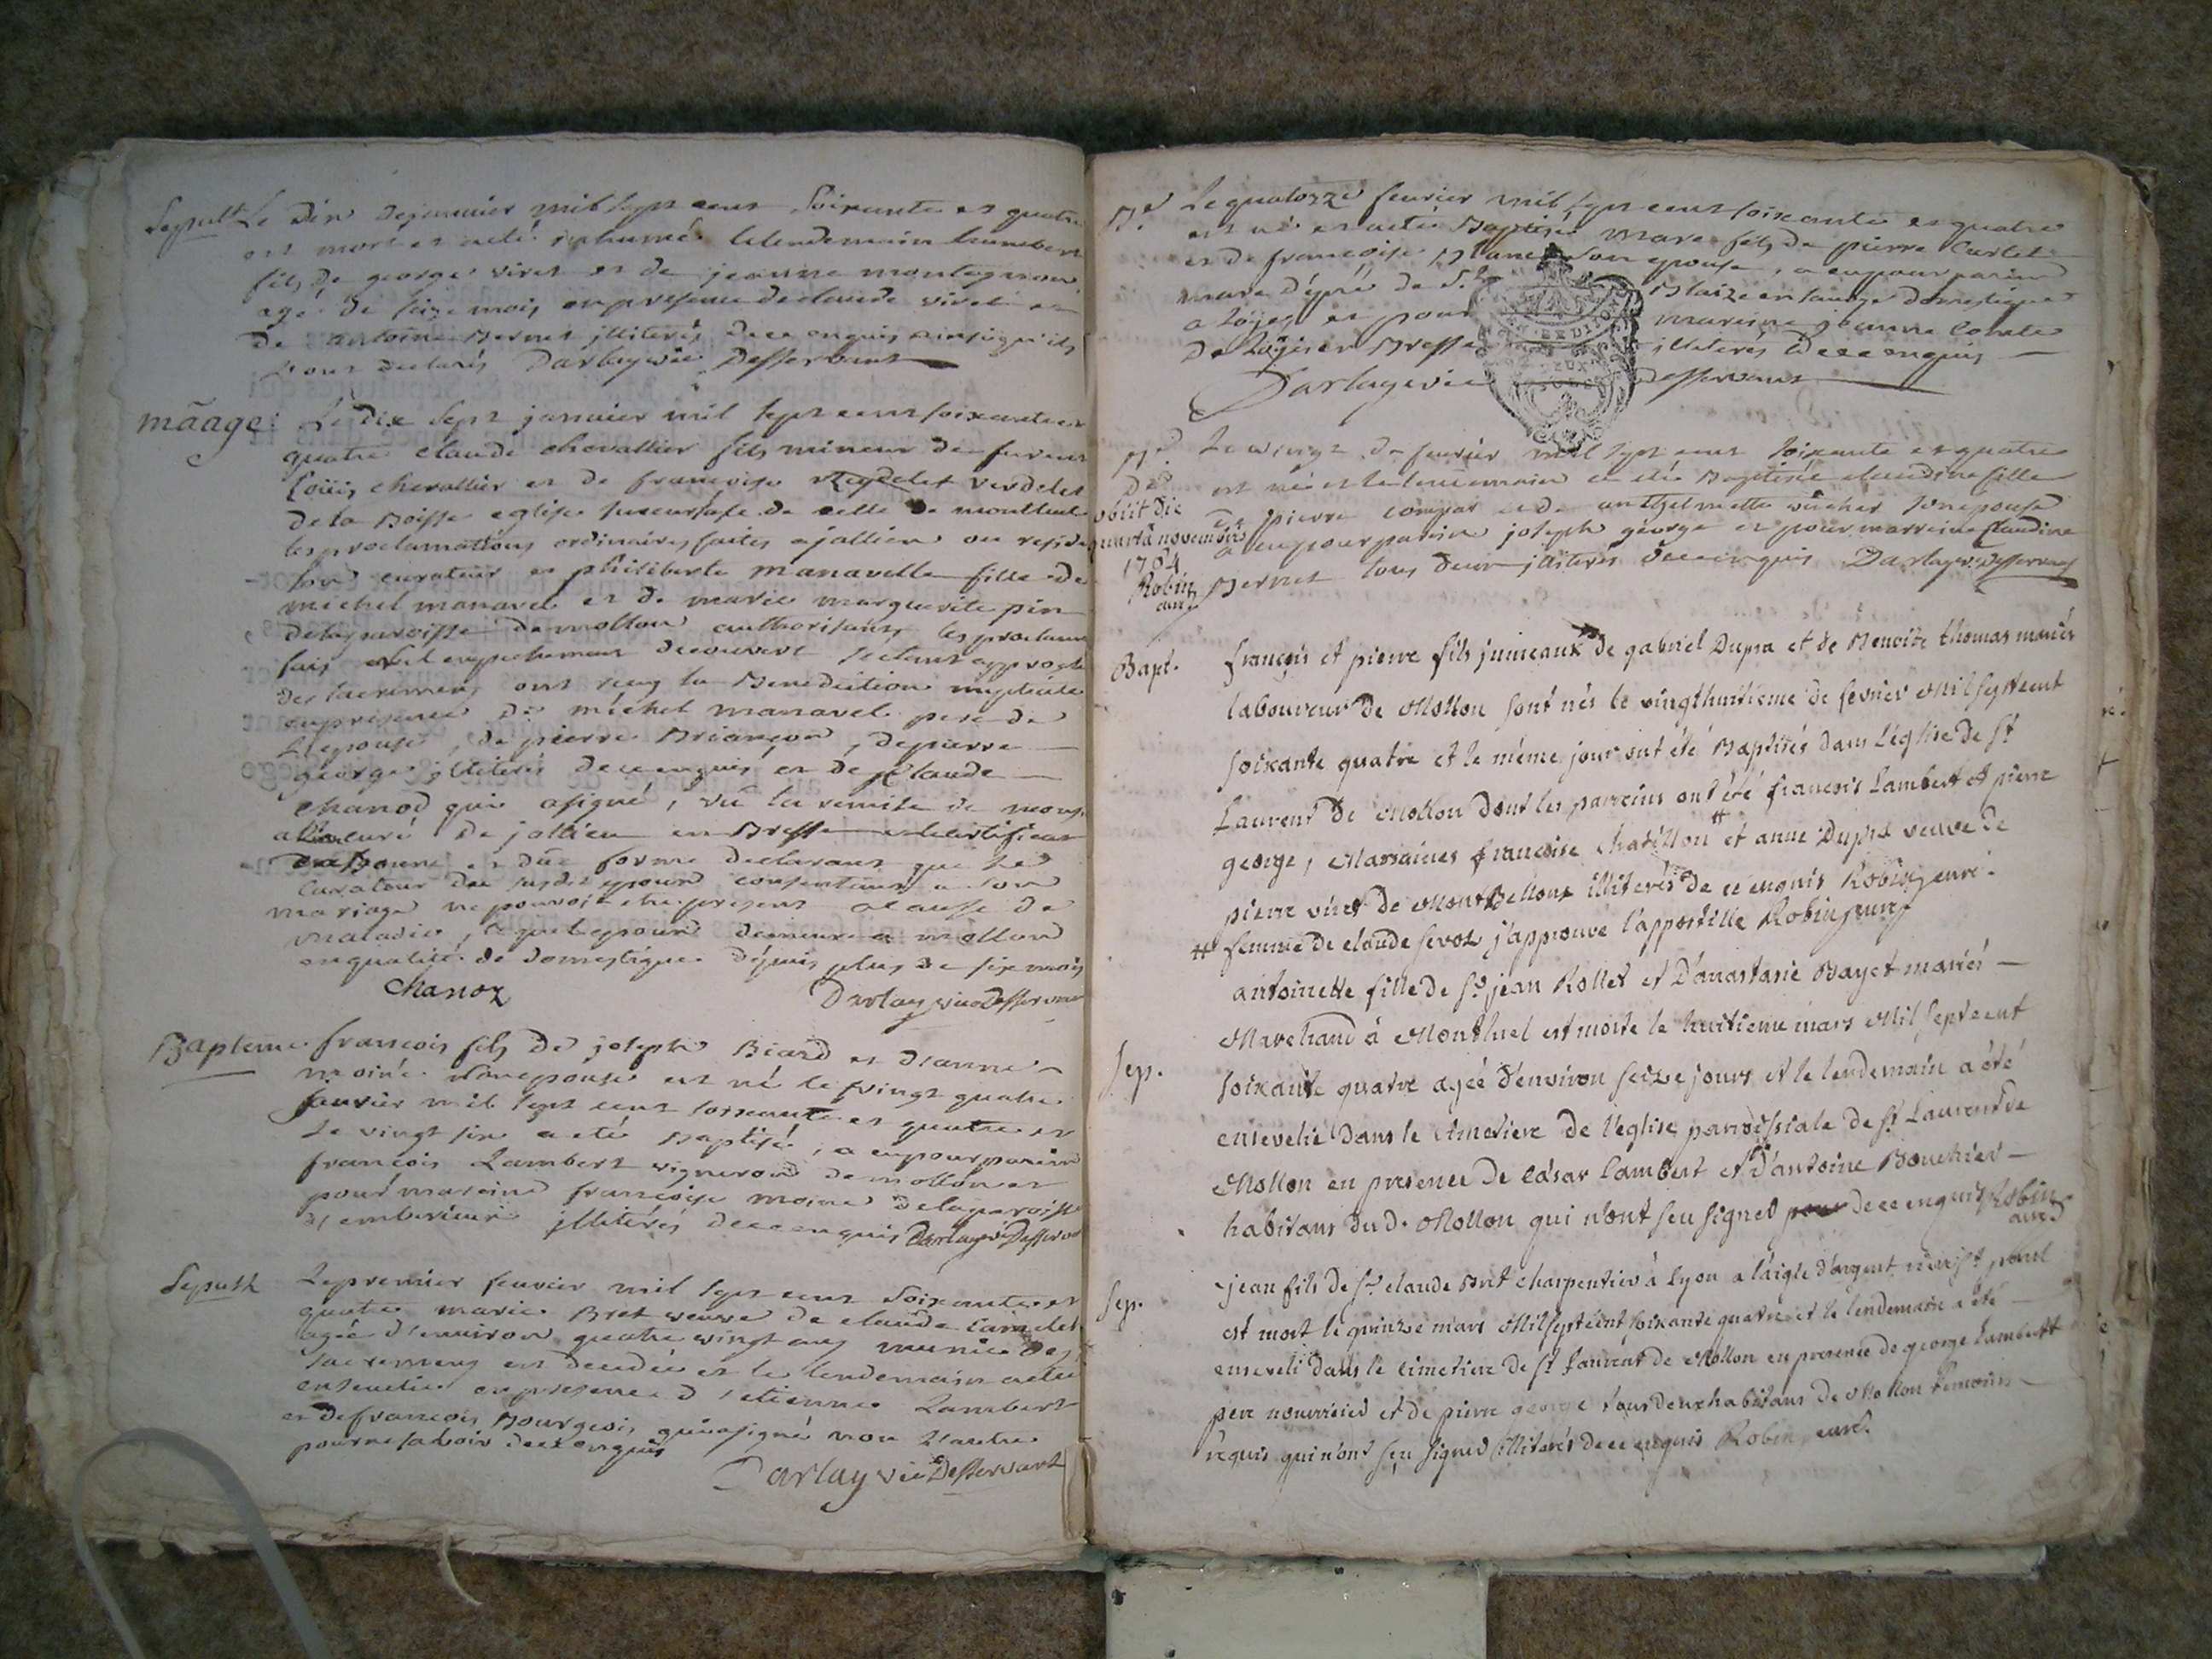 Sepult. Le dix de janvier mil sept cent soixante et quatre
est mort et a eté inhumé le lendemain humbert
fils de george viret et de jeanne montagnon
agé de seize mois en presence de claude viret et
de antoine Bernet illiterés de ce enquis ainsi qu'ils
l'ont declarés Darlay vic Desservant
māage: Le dix sept janvier mil sept cent soixante et
quatre claude chevallier fils mineur de feu
Loüis chevallier et de francoise verdelet
de la Boisse eglise succursale de celle de montluel
les proclamations ordinaires faites a jallieu ou reside
son curateur et philiberte manavelle fille de
michel manavel et de marie marguerite pin
de la paroisse de mollon
fais nul empechement decouvert s'etant approchés
des sacremens ont reçu la Benediction nuptiale
en presence de michel manavel pere de
L'epouse, de pierre Briançon, de pierre
george illiterés de ce enquis et de Claude
chanod qui a signé, vû la remise de mons.
curé de jallieu en Bresse et certificat
en Bonne et düe forme declarant que le
curateur du susdit epoux, consentant a son
mariage ne pouvoit etre present a cause de
maladie, lequel epoux demeure a mollon
en qualité de domestique depuis plus de six mois
Chanoz Darlay vic Desservant
Bapteme. francois fils de joseph Biard et d'anne
moine son epouse est né le vingt quatre
janvier mil sept cent soixante et quatre et
le vingt six a eté Baptisé, a eu pour parein
francois Lambert vigneron de mollon et
pour mareine françoise moine de la paroisse
d'emberieux illiterés de ce enquis Darlay vic Desservant
Sepult Le premier fevrier mil sept cent soixante et
quatre marie Bret veuve de claude
agée d'environ quatre vingt ans munie des
sacremens est decedée et le lendemain a eté
ensevelie en presence d'etienne Lambert
et de francois Bourgeois qui a signé non l'autre
pour ne savoir de ce enquis
Darlay vic Desservant
Le quatorze fevrier mil sept cent soixante et quatre
est né et a eté Baptisé marc fils de pierre Carlet
et de francoise son epouse, a eu pour parein
marc dépré de St Blaize en sauge domestique
a Loyes et pour mareine jeanne
de Loyes en Bresse illiterés de ce enquis
Darlay vic desservant
Bt Le vingt de fevrier mil sept cent soixante et quatre
est né et le lendemain a eté Baptisée claudine fille
de pierre compar et de anthelmette vûcher son epouse
a eu pour parein joseph george et pour marreine claudine
Bernet tous deux illiterés de ce enquis Darlay vic Desservant
obiit die
quarta novembris
1764
Robin
curé
Bapt. françois et pierre fils jumeaux de gabriel Dupra et de Benoite thomas mariés
laboureur de Mollon sont nés le vingthuitieme de fevrier Mil septcent
soixante quatre et le même jour ont été Baptisés dans L'église de St
Laurent de Mollon dont les parreins ont été francois Lambert et pierre
george, Marraines francoise Chatillon # et anne Dupra veuve de
pierre viret de MontBellour illiterés de ce enquis Robin curé.
# femme de claude sevoz j'approuve l'appostille Robin curé
Sep. antoinette fille de sr jean Rollet et D'anastasie Bayet mariés
Marchand à Montluel est morte le huitieme mars Mil septcent
soixante quatre agée d'environ seize jours et le lendemain a été
ensevelie dans le cimetiere de l'église parroissiale de St Laurent de
Mollon en presence de césar Lambert et d'antoine Bouchier
habitans dud. Mollon qui n'ont sçu signer de ce enquis Robin
curé
Sep. jean fils de sr claude Bret charpentier à Lyon a l'aigle d'argent rüe st paul
est mort le quinze mars Mil septcent soixante quatre et le lendemain a été
enseveli dans le cimetiere de St Laurent de Mollon en presence de george Lambert
pere nourricier et de pierre george tous deux habitans de Mollon temoins
requis qui n'ont sçu signer illiterés de ce enquis Robin curé.